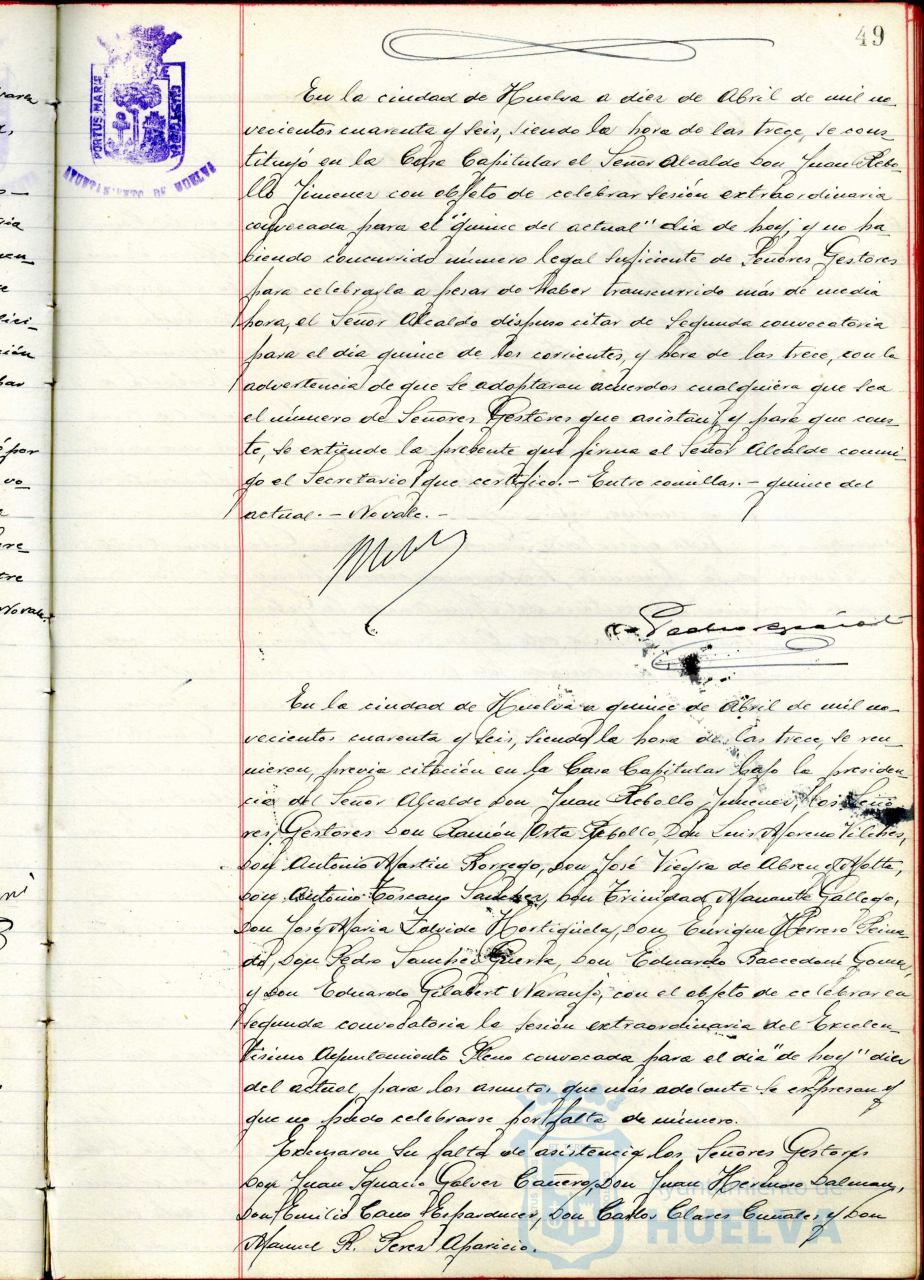 49
PORTUS MARIS ET TERRAE CUSTODIA
AYUNTAMIENTO DE HUELVA
En la ciudad de Huelva a diez de Abril de mil no-
vecientos cuarenta y seis, siendo la hora de las trece, se cons-
tituyó en la Casa Capitular el Señor Alcalde Don Juan Rebo-
llo Jimenez con objeto de celebrar sesión extraordinaria
convocada para el "quince del actual" dia de hoy, y no ha-
biendo concurrido número legal suficiente de Señores Gestores
para celebrarla a pesar de haber transcurrido más de media
hora, el Señor Alcalde dispuso citar de segunda convocatoria
para el dia quince de los corrientes, y hora de las trece, con la
advertencia de que se adoptaran acuerdos cualquiera que sea
el número de Señores Gestores que asistan, y para que cons-
te, se extiende la presente que firma el Señor Alcalde conmi-
go el Secretario que certifico.- Entre comillas.- quince del
actual.- No vale.-
Pedro
En la ciudad de Huelva a quince de Abril de mil no-
vecientos cuarenta y seis, siendo la hora de las trece, se reu-
nieron, previa citación en la Casa Capitular bajo la presiden-
cia del Señor Alcalde Don Juan Rebollo Jimenez, los Seño-
res Gestores Don Ramón Orta Rebollo, Don Luis Moreno Vilches,
Don Antonio Martin Borrego, Don José Vieyra de Abreu Motta,
Don Antonio Toscano Sanchez, Don Trinidad Manante Gallego,
Don José Maria Zalvide Hortigüela, Don Enrique Herrero Peina-
do, Don Pedro Sanchez Guerra, Don Eduardo Gomez,
y Don Eduardo Gilabert Naranjo, con el objeto de celebrar en
segunda convocatoria la sesión extraordinaria del Excelen-
tisimo Ayuntamiento Pleno convocada para el dia "de hoy" diez
del actual, para los asuntos que más adelante se expresan y
que no pudo celebrarse por falta de número.
Excusaron su falta de asistencia los Señores Gestores
Don Juan Ignacio Galvez Cañero, Don Juan Hermoso Dalmau,
Don Emilio Cano, Don Carlos Clares y Don
Manuel R. Perez Aparicio.
Ayuntamiento de
HUELVA